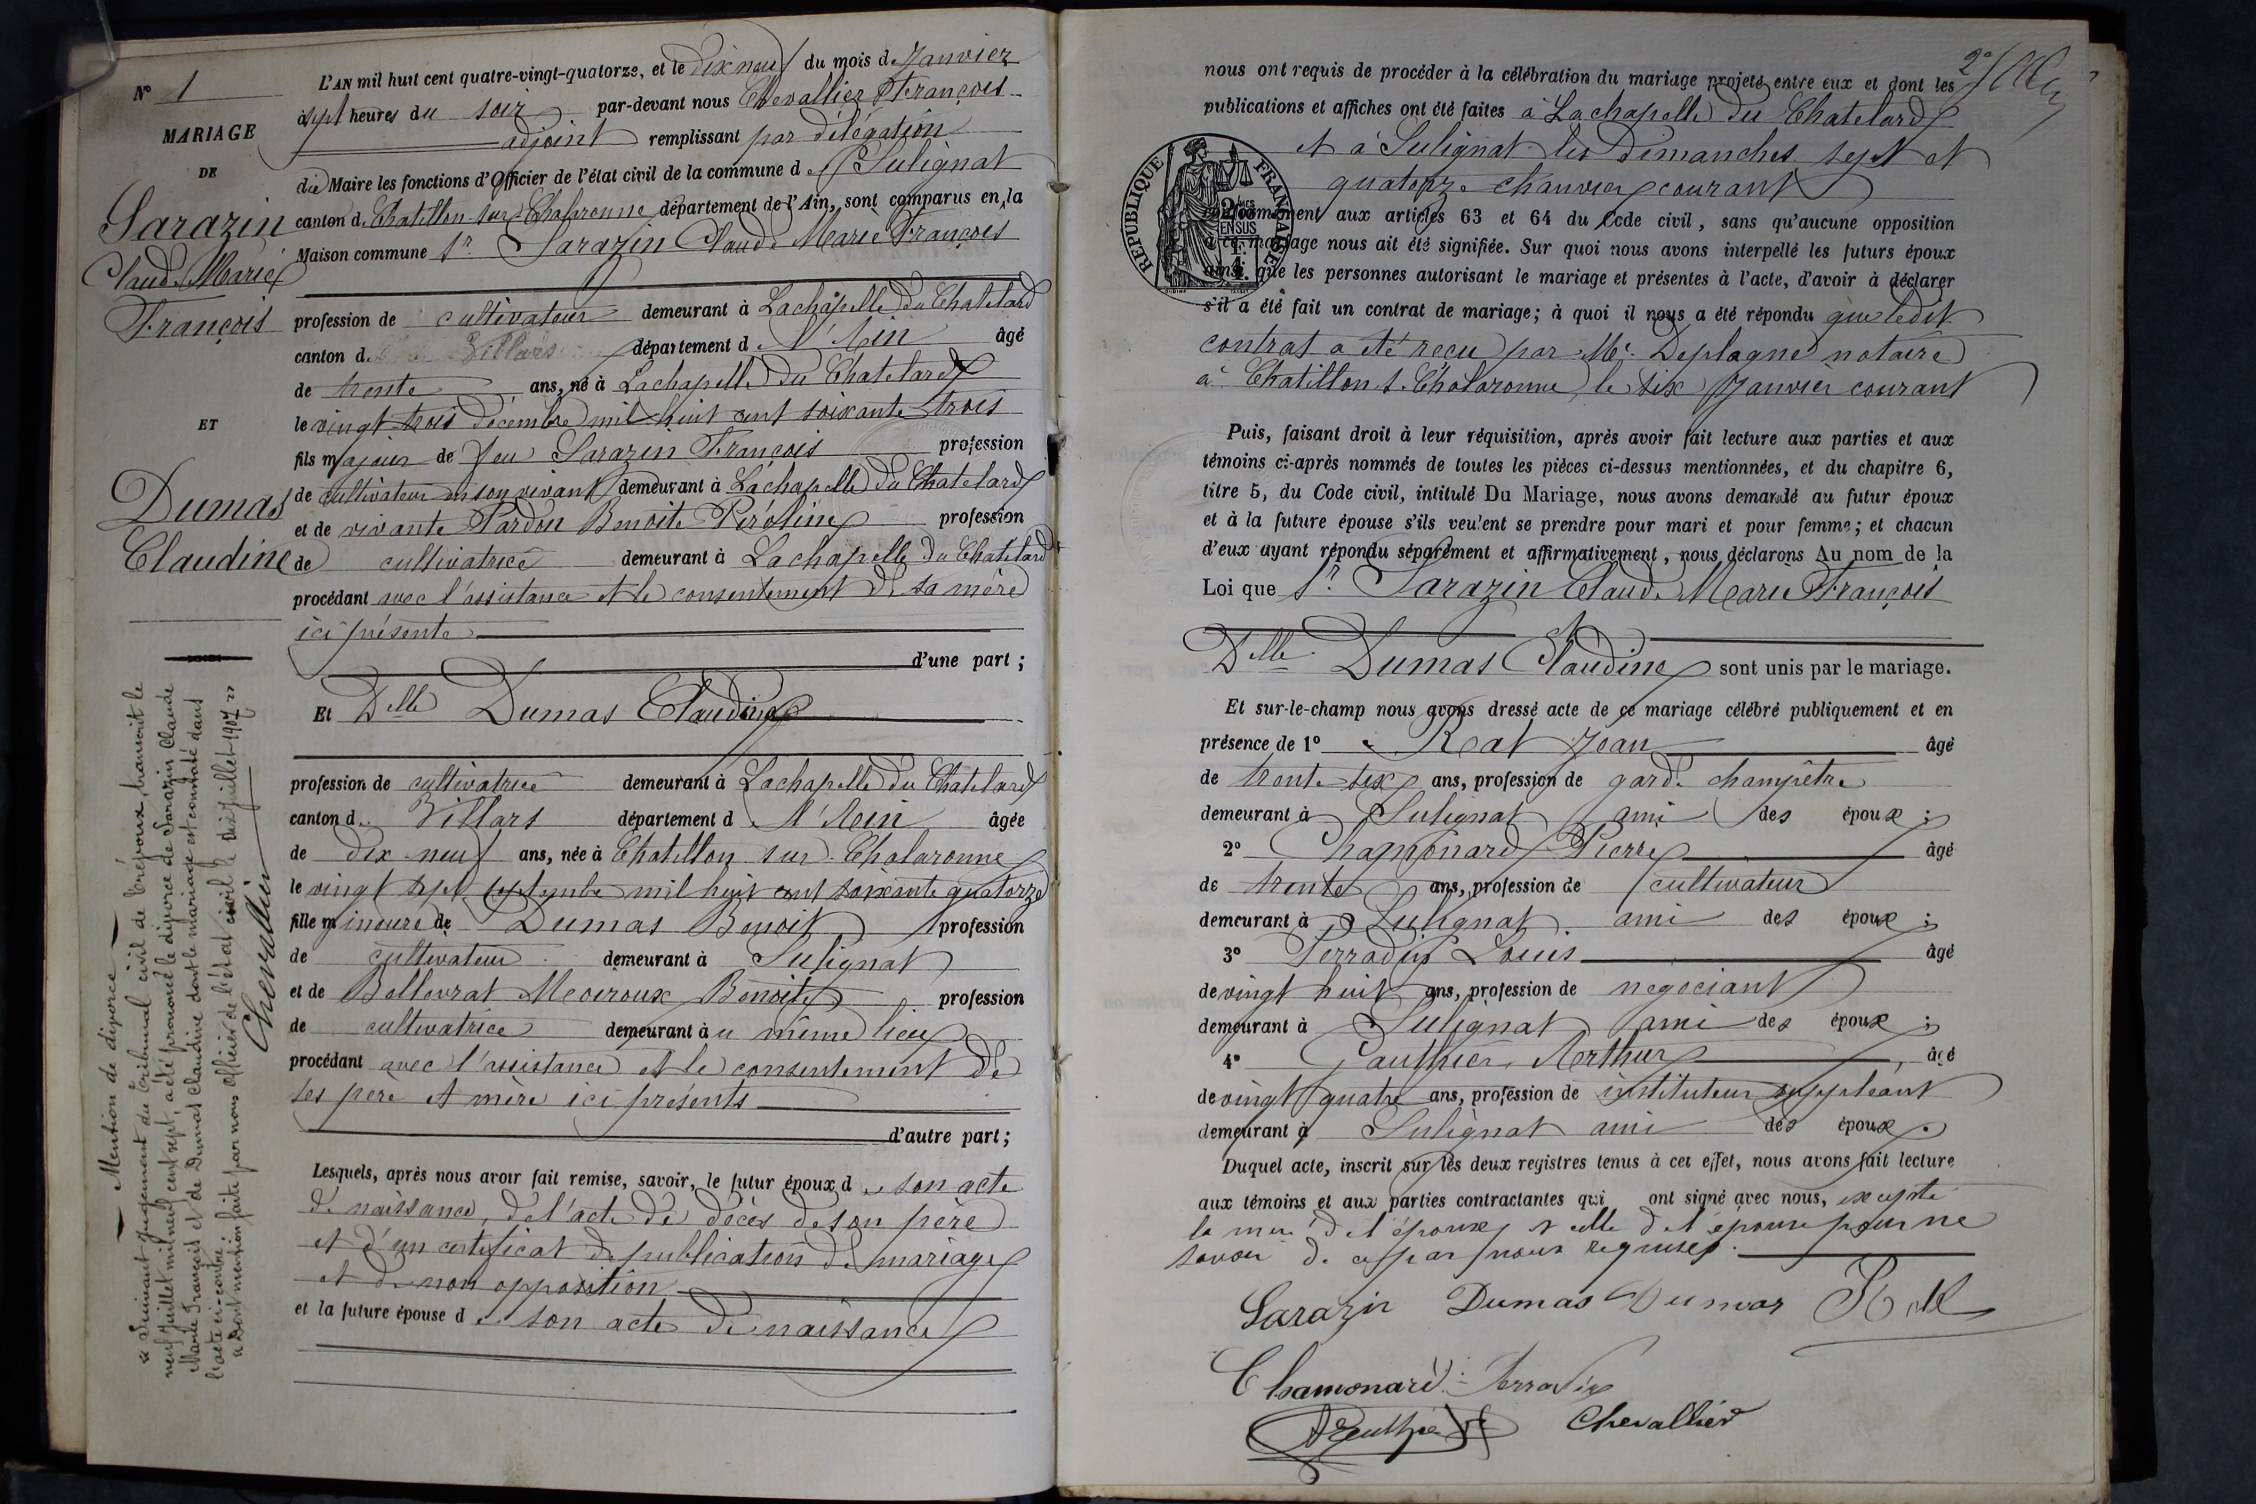 N° 1
MARIAGE
DE
Sarazin
Claude Marie
François
ET
Dumas
Claudine
Mention de divorce
« Suivant jugement du tribunal civil de Trévoux, transcrit le
neuf juillet mil neuf cent sept, a été prononcé le divorce de Sarazin Claude
Marie François et de Dumas Claudine dont le mariage est constaté dans
l'acte ci-contre.
« Dont mention faite par nous officier de l'état civil le dix juillet 1907 »
Chevallier
L'AN mil huit cent quatre-vingt-quatorze, et le dix neuf du mois d e Janvier
à sept heures du soir par-devant nous Chevallier François
adjoint remplissant par délégation
du Maire les fonctions d'Officier de l'état civil de la commune d e Sulignat
canton d e Chatillon sur Chalaronne département de l'Ain, sont comparus en la
Maison commune Sr. Sarazin Claude Marie François
profession de cultivateur demeurant à Lachapelle du Chatelard
canton d e Villars département d e l'Ain âgé
de trente ans, né à Lachapelle du Chatelard
le vingt trois décembre mil huit cent soixante trois
fils majeur de feu Sarazin François profession
de cultivateur en son vivant demeurant à Lachapelle du Chatelard
et de vivante Pardon Benoite Péroline profession
de cultivatrice demeurant à Lachapelle du Chatelard
procédant avec l'assistance et le consentement de sa mère
ici présente
d'une part ;
Et Delle Dumas Claudine
profession de cultivatrice demeurant à Lachapelle du Chatelard
canton d e Villars département d e l'Ain âgée
de dix neuf ans, née à Chatillon sur Chalaronne
le vingt sept septembre mil huit cent soixante quatorze
fille mineure de Dumas Benoit profession
de cultivateur demeurant à Sulignat
et de Bellevrat Meuroux Benoite profession
de cultivatrice demeurant au même lieu
procédant avec l'assistance et le consentement de
ses père et mère ici présents
d'autre part ;
Lesquels, après nous avoir fait remise, savoir, le futur époux d e son acte
de naissance, de l'acte de décès de son père
et d'un certificat de publication de mariage
et de non opposition
et la future épouse d e son acte de naissance
nous ont requis de procéder à la célébration du mariage projeté entre eux et dont les
publications et affiches ont été faites à Lachapelle du Chatelard
et à Sulignat les dimanches sept et
quatorze Janvier courant
RÉPUBLIQUE FRANÇAISE
conformément aux articles 63 et 64 du Code civil, sans qu'aucune opposition
à ce mariage nous ait été signifiée. Sur quoi nous avons interpellé les futurs époux
ainsi que les personnes autorisant le mariage et présentes à l'acte, d'avoir à déclarer
s'il a été fait un contrat de mariage ; à quoi il nous a été répondu que ledit
contrat a été reçu par Me. Deplagne notaire
à Chatillon s. Chalaronne, le six Janvier courant
Puis, faisant droit à leur réquisition, après avoir fait lecture aux parties et aux
témoins ci-après nommés de toutes les pièces ci-dessus mentionnées, et du chapitre 6,
titre 5, du Code civil, intitulé Du Mariage, nous avons demandé au futur époux
et à la future épouse s'ils veulent se prendre pour mari et pour femme ; et chacun
d'eux ayant répondu séparément et affirmativement, nous déclarons Au nom de la
Loi que Sr. Sarazin Claude Marie François
et
Delle. Dumas Claudine sont unis par le mariage.
Et sur-le-champ nous avons dressé acte de ce mariage célébré publiquement et en
présence de 1° Réat Jean âgé
de trente six ans, profession de garde champêtre
demeurant à Sulignat ami des époux ;
2° Chamonard Pierre âgé
de trente ans, profession de cultivateur
demeurant à Sulignat ami des époux ;
3° Perradin Louis âgé
de vingt huit ans, profession de négociant
demeurant à Sulignat ami des époux ;
4° Gauthier Arthur, âgé
de vingt quatre ans, profession de instituteur suppléant
demeurant à Sulignat ami des époux.
Duquel acte, inscrit sur les deux registres tenus à cet effet, nous avons fait lecture
aux témoins et aux parties contractantes qui ont signé avec nous, excepté
la mère de l'époux et celle de l'épouse pour ne
savoir de ce par nous requises.
Sarazin Dumas Dumas Réat
Chamonard Perradin
A Gauthier Chevallier